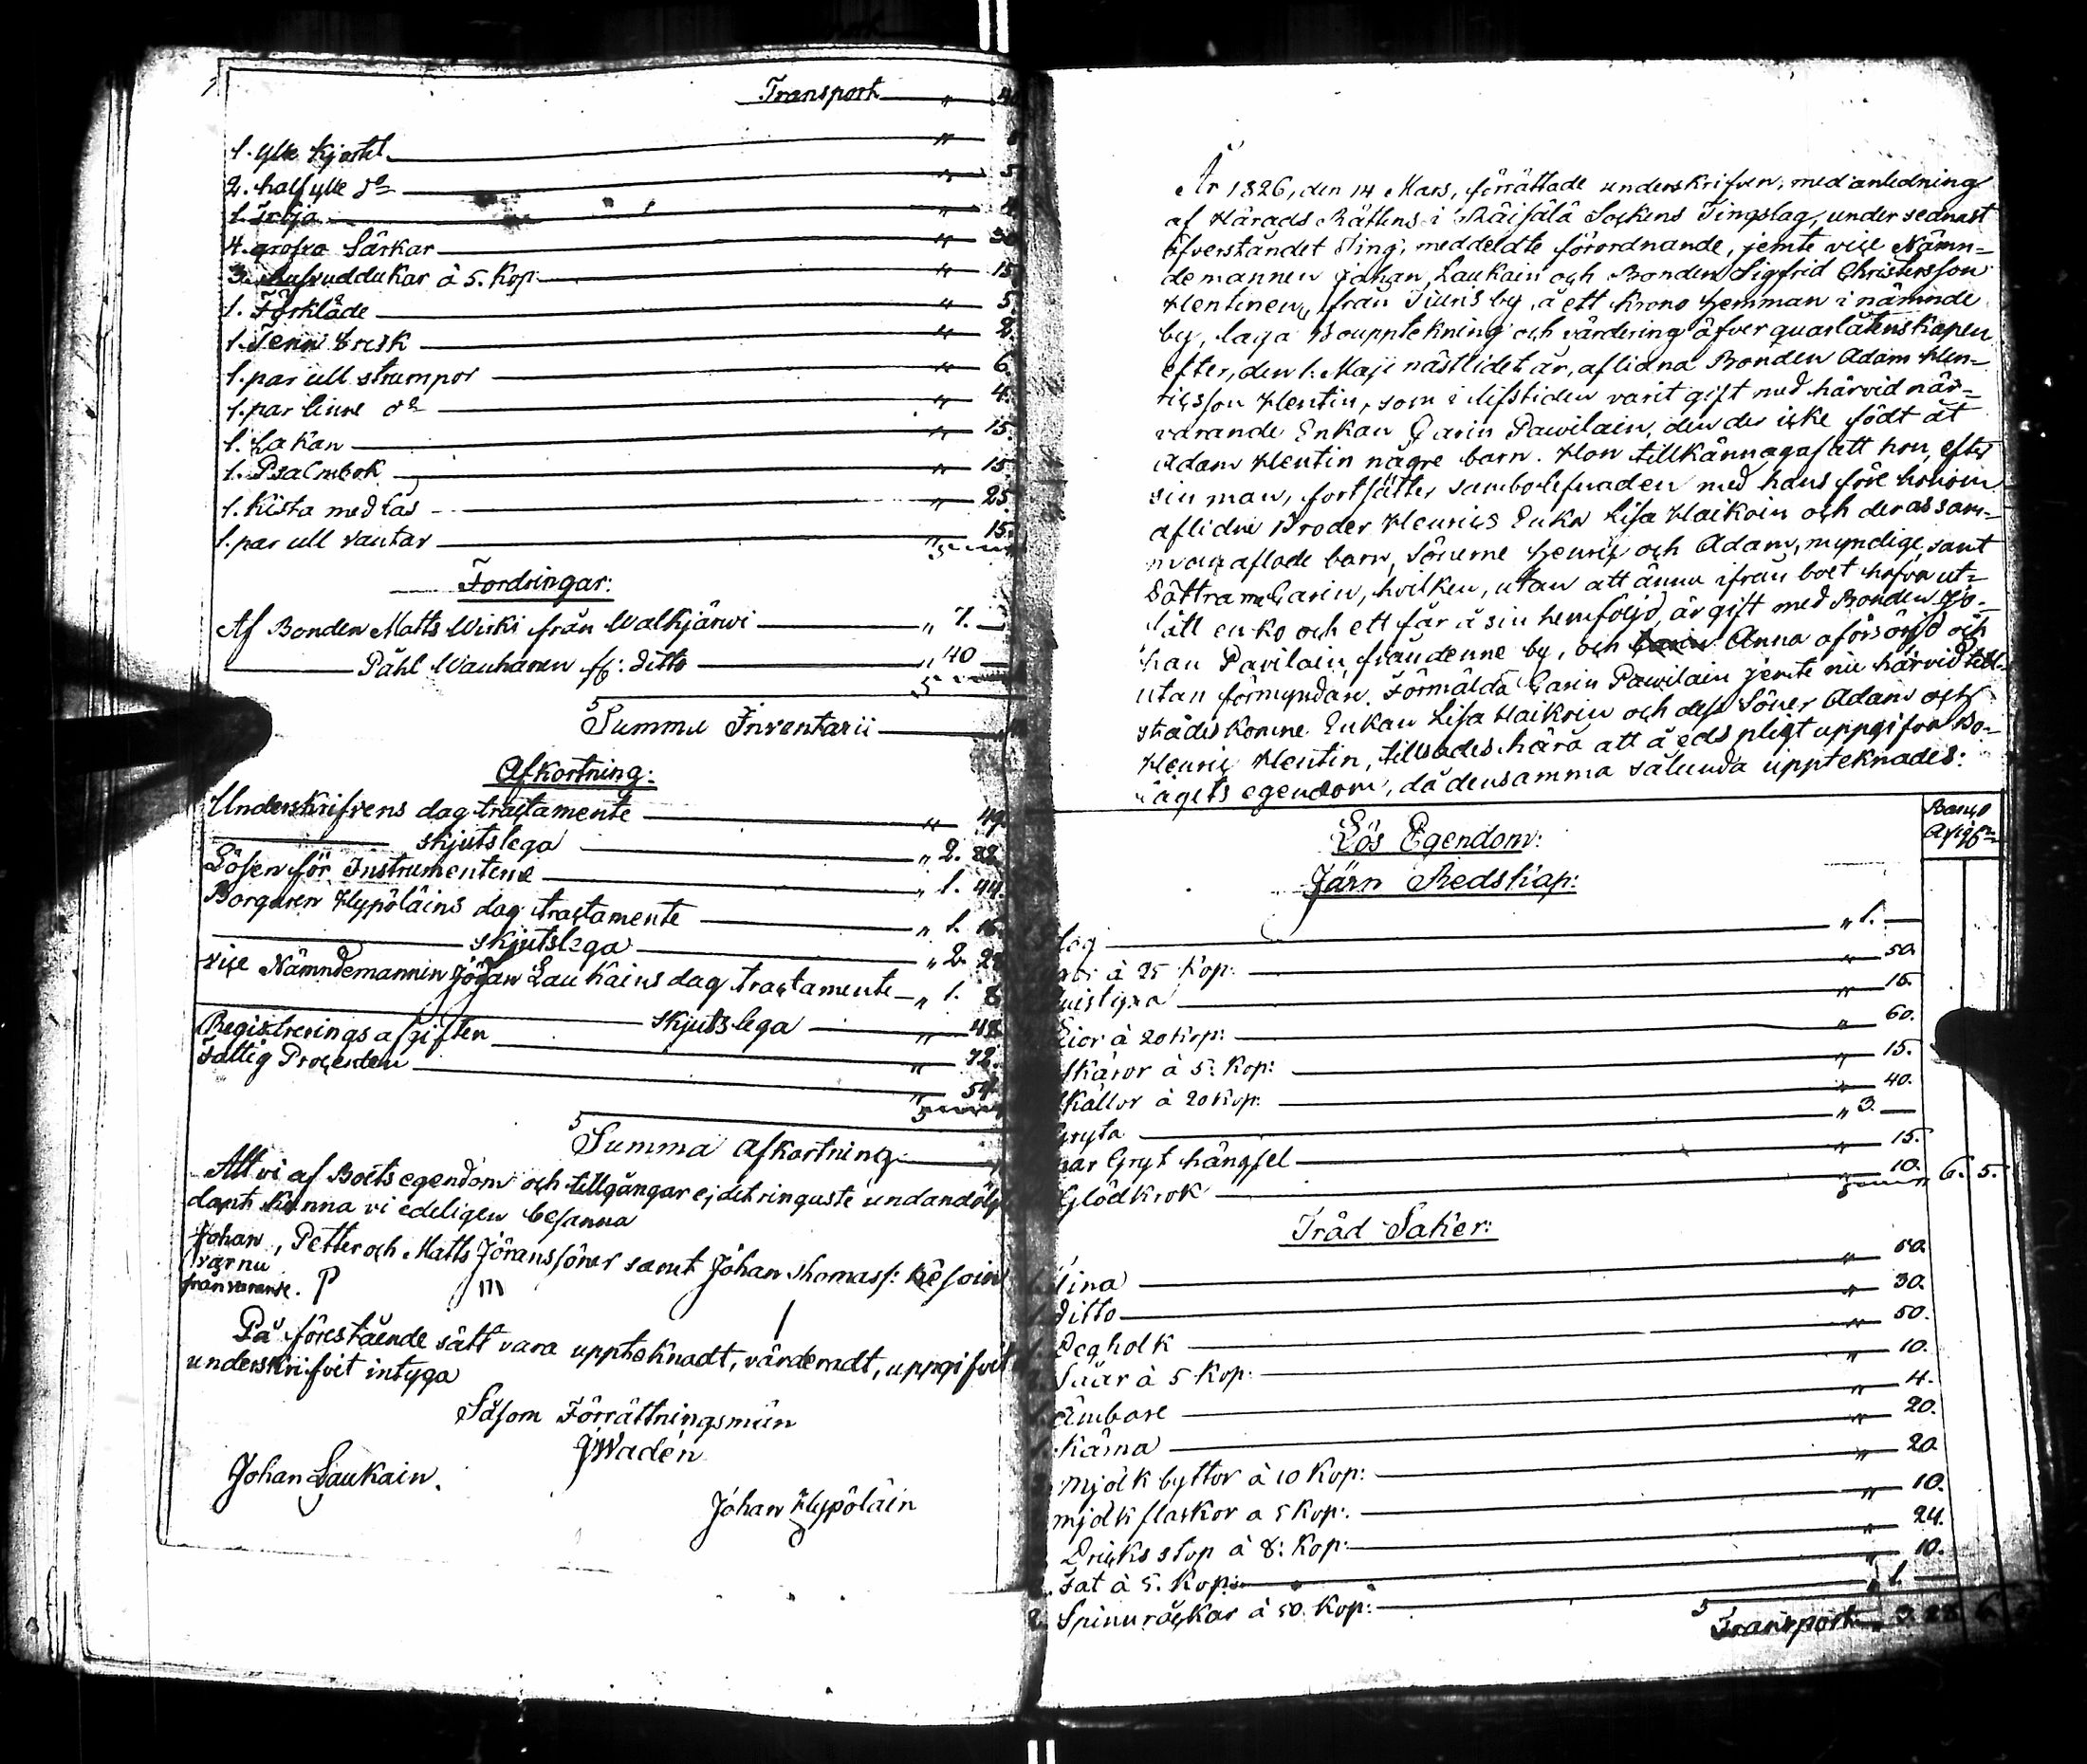 Transport " 4
1. ylle Kjortel " 5
2. half ylle do " 5
1. Tröja " 4
4. grofva Särkar " 30
3. hufvuddukar à 5. Kop: " 15
1. Förkläde " 5.
1. Tenn brisk " 2.
1. par ull strumpor " 6.
1. par linne do " 4.
1. Lakan " 15.
1. Psalmbok " 15.
1. Kista med Lås " 25.
1. par ull vantar " 15.
Fordringar:
Af Bonden Matts Wirki från Walkjärwi " 7.
Påhl Wauhanen fr: ditto " 40
Summa Inventarii
Afkortning:
Underskrifvens dag tractamente " 49.
skjutslega " 2. 82.
Lösen för Instrumentene " 1. 44.
Borgaren Hypöläins dag tractamente " 1. 16.
skjutslega " 2. 2
vice Nämndemannen Johan Laukains dag tractamente " 1. 8
skjutslega " 48
Registrerings afgiften " 72.
Fattig Procenten " 54
Summa Afkortning
Att vi af Boets egendom och tillgångar ej det ringaste undandölgt
dant kunna vi edeligen besanna
Johan, Petter och Matts Jöranssöner samt Johan Thomass:
var nu
frånvarande. P m /
På förestående sätt vara upptecknadt, värderadt, uppgifvit
underskrifvit intyga
Såsom Förrättningsmän
J Wadén
Johan Laukain.
Johan Hypöläin
År 1826, den 14 Mars, förrättade underskrifven, med anledning
af Härads Rättens i Räisälä Sockens Tingslag, under sednast
öfverståndet Ting, meddeldte förordnande, jemte vice Nämn-
demannen Johan Laukain och Bonden Sigfrid Christersson
Hentinen, från Tiuris by, å ett Krono hemman i nämnde
by, laga Bouppteckning och värdering öfver quarlåtenskapen
efter, den 1. Maji nästlidet år, aflidna Bonden Adam Hen-
ricsson Hentin, som i lifstiden varit gift med härvid när-
varande Enkan Carin Pawilain, den der icke födt åt
Adam Hentin någre barn. Hon tillkännagaf att hon, efter
sin man, fortsätter sambolefnaden med hans före honom
aflidne Broder Henrics Enka Lisa Haikoin och deras sam-
man aflade barn, Sönerne Henric och Adam, myndige, samt
Döttrarne Carin, hvilken, utan att ännu ifrån boet hafva ut-
tått en ko och ett får å sin hemföljd, är gift med Bonden Jo-
han Pavilain från denne by, och Anna oförsörjd och
utan förmyndare. Förmälda Carin Pawilain jemte nu härvid till-
städes komne Enkan Lisa Haikoin och dess Söner Adam och
Henric Hentin, tillsades härå att å eds pligt uppgifva Bo-
lagets egendom, då densamma sålunda upptecknades:
Banco Assign:
Lös Egendom:
Järn Redskap:
" 1.
à 25 Kop: " 50.
" 15.
Lior à 20 Kop: " 60.
Skäror à 5. Kop: " 15.
Skällor à 20 Kop: " 40.
Gryta " 3.
par Gryt hängsel " 15.
Glödkrok 10. 6. 5.
Träd Saker:
1. Tina " 50
1. ditto " 30.
1. Degholk " 50.
2. Såar à 5 Kop: " 10.
1. Ämbare " 4.
1. Kärna " 20.
Mjölk byttor à 10 Kop: " 20
mjölk flaskor a 5 Kop: " 10.
Dricks stop à 8. Kop: " 24.
2. Fat à 5. Kop: " 10.
2. Spinnråckar à 50. Kop: " 1.
Transport 3. 28 6. 5